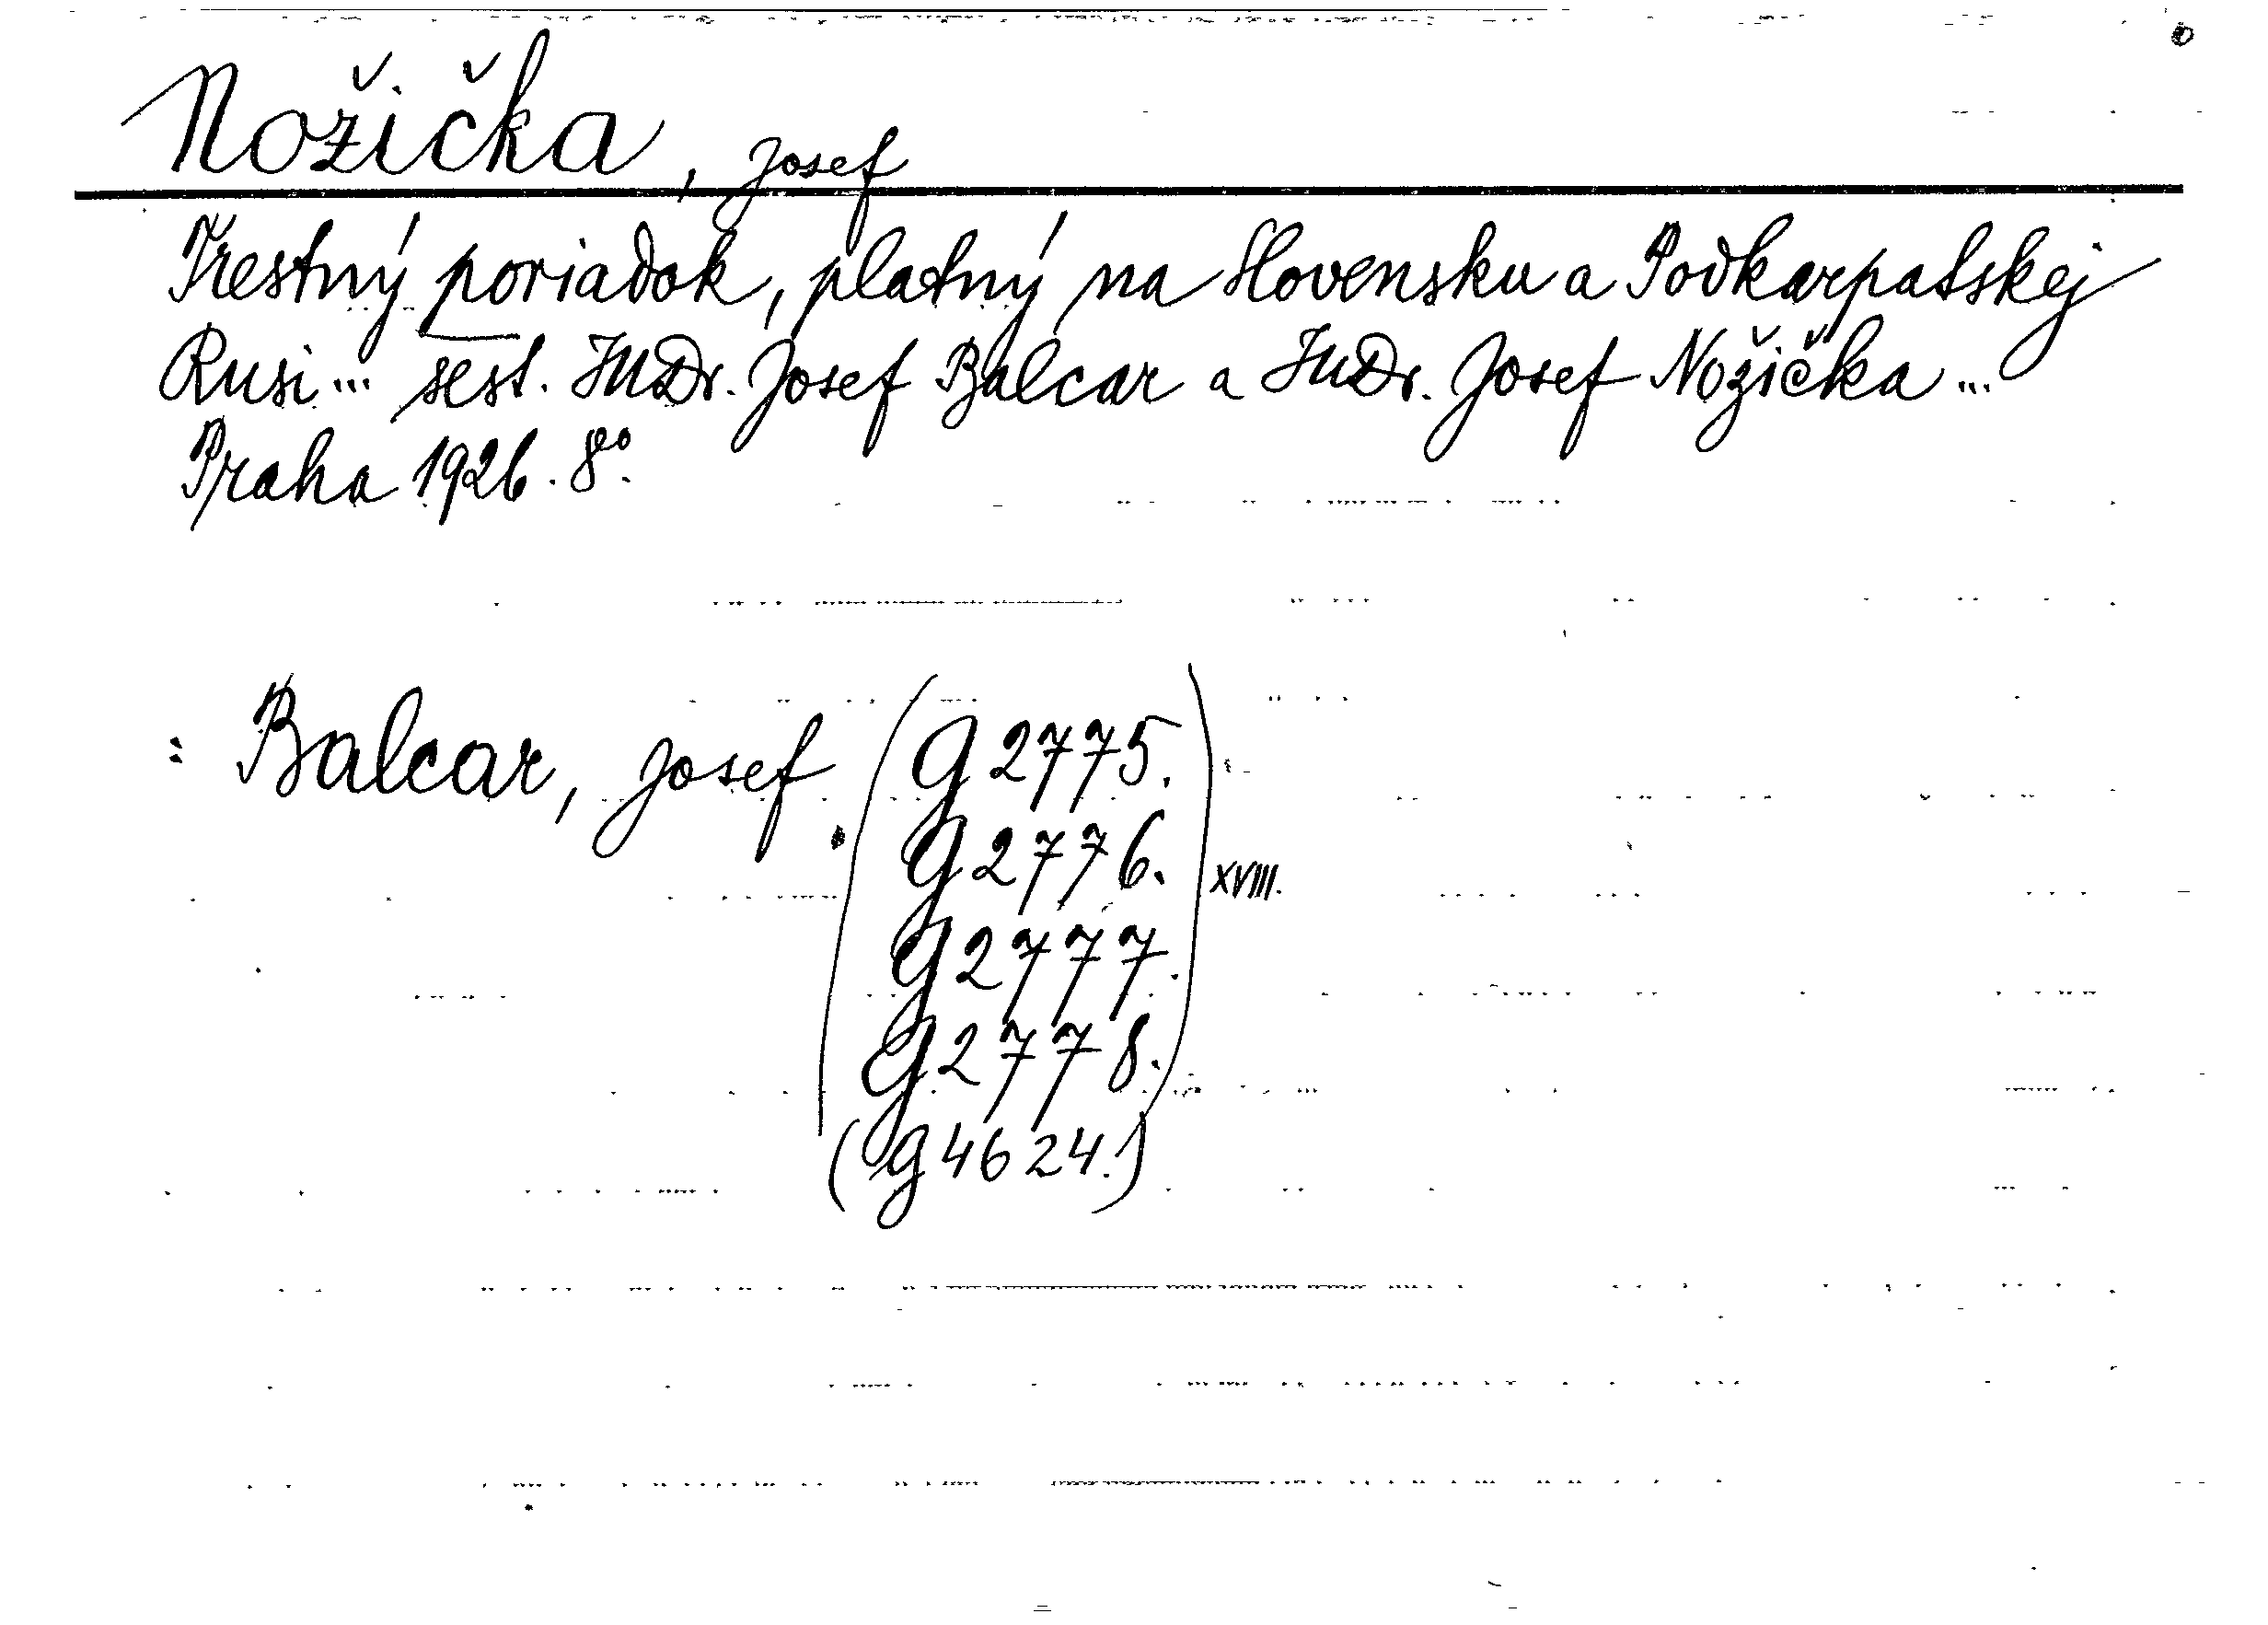 Nožička, Josef
Trestný poriadok, platný na Slovensku a Podkarpatskej
Rusi ... sest. JUDr. Josef Balcar a JUDr. Josef Nožička ...
Praha 1926. 8°.
: Balcar, Josef. (g 2775.
g 2776.
g 2777.
g 2778.) XVIII.
(g 4624.)